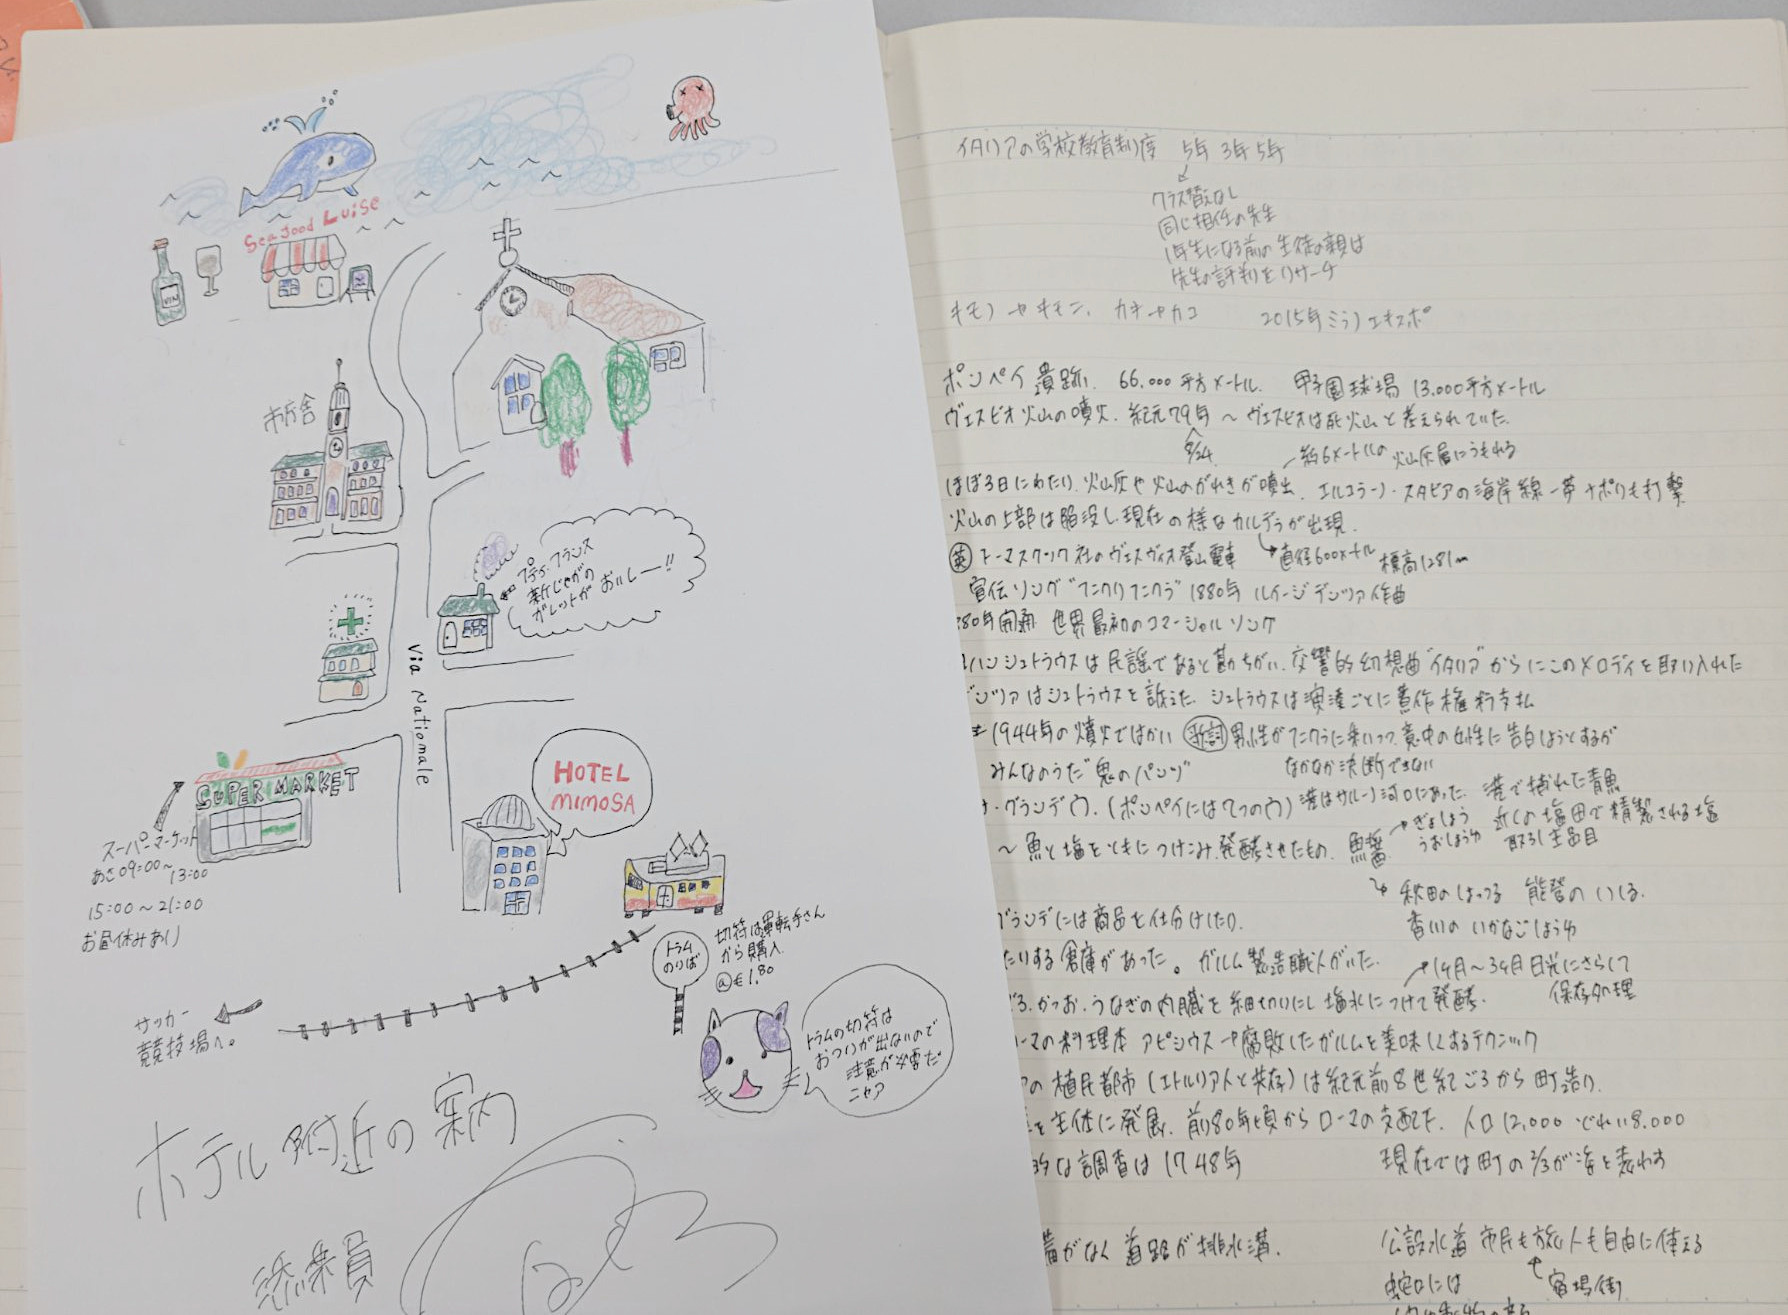 Seafood Luise
VIN
市庁舎
プティ・フランス
新じゃがの
ガレットが おいしー!!
Via Nationale
HOTEL
MIMOSA
SUPER MARKET
スーパーマーケット
あさ09:00~
13:00
15:00~21:00
お昼休みあり
サッカー
競技場へ。
トラム
のりば
切符は運転手さん
から購入
@€1.80
トラムの切符は
おつりが出ないので
注意が必要だ
ニャア
ホテル附近の案内
添乗員
イタリアの学校教育制度 5年 3年 5年
クラス替えなし
同じ担任の先生
1年生になる前の生徒の親は
先生の評判をリサーチ
キモノ→キモニ、カキ→カコ 2015年ミラノエキスポ
ポンペイ遺跡 66,000平方メートル 甲子園球場 13,000平方メートル
ヴェスビオ火山の噴火 紀元79年~ヴェスビオは死火山と考えられていた。
8/24
約6メートルの火山灰層にうもれる
ほぼ3日にわたり、火山灰や火山のがれきが噴出、エルコラーノ・スタビアの海岸線一帯ナポリも打撃
火山の上部は陥没し現在の様なカルデラが出現。
直径600メートル 標高1281m
英 トーマスクック社のヴェスヴィオ登山電車
宣伝ソング"フニクリフニクラ"1880年 ルイージデンツァ作曲
80年開通 世界最初のコマーシャルソング
ハンシュトラウスは民謡であると勘ちがい、交響的幻想曲"イタリア"からにこのメロディを取り入れた
デンツァはシュトラウスを訴えた。シュトラウスは演奏ごとに著作権料支払
1944年の噴火ではかい 新詞 男性がフニクラに乗いって意中の女性に告白しようとするが
なかなか決断できない
みんなのうた"鬼のパンツ"
グランデ門、(ポンペイには7つの門) 港はサルーノ河口にあった。港で捕れた青魚
近くの塩田で精製される塩
取ろし主品目
~魚と塩をともにつけこみ、発酵させたもの。魚醤
ぎょしょう
うおしょうゆ
秋田のしょっつる 能登の いしる
香川の いかなごしょうゆ
グランデには商品を仕分けしたり、
たりする倉庫があった。ガルム製造職人がいた。
かつお・うなぎの内臓を細切りにし塩水につけて発酵。
1ヶ月~3ヶ月日光にさらして
保存処理
ーマの料理本 アピシウス→腐敗したガルムを美味しくするテクニック
の植民都市(エトルリア人と共存)は紀元前8世紀ごろから町造り。
を主体に発展、前80年頃からローマの支配下。人口12,000 どれい8,000
的な調査は1748年 現在では町の2/3が姿を表わす
がなく道路が排水溝。
公設水道 市民も旅人も自由に使える
宿場街
蛇口には